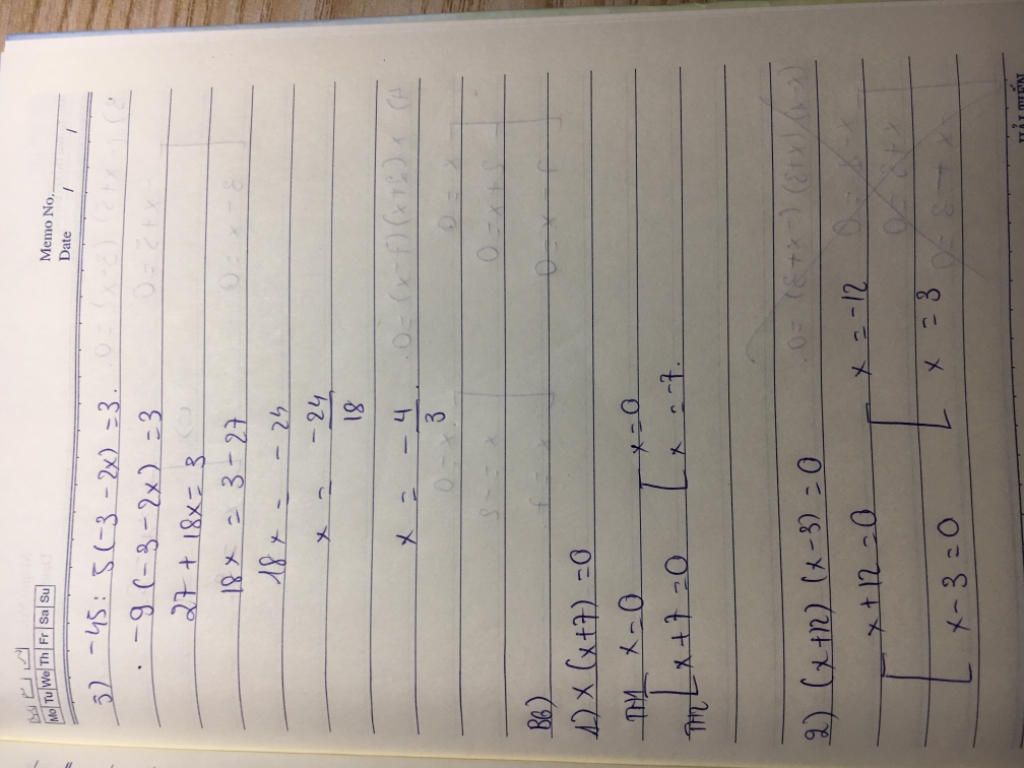 Memo No.
Date / /
Mo Tu We Th Fr Sa Su
3) -45 : 5 (-3 - 2x) = 3.
-9 (-3 - 2x) = 3
27 + 18x = 3
18x = 3 - 27
18x = -24
x = -24/18
x = -4/3
B6)
1) x (x+7) = 0
TH1 [ x = 0 [ x = 0
TH2 [ x + 7 = 0 [ x = -7.
2) (x+12) (x-3) = 0
[ x + 12 = 0 [ x = -12
[ x - 3 = 0 [ x = 3